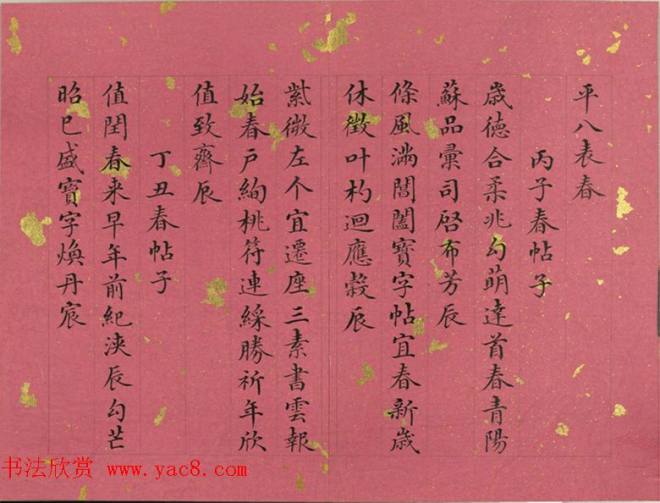 平八表春
丙子春帖子
歲德合柔兆勾萌達首春青陽
蘇品彙司啓布芳辰
條風滿閶闔寶字帖宜春新歲
休徵叶朽迴應穀辰
紫微左个宜遷座三素書雲報
始春戶絢桃符連綵勝祈年欣
值致齋辰
丁丑春帖子
值閏春来早年前紀浹辰勾芒
昭已盛寶字煥丹宸
书法欣赏 www.yac8.com